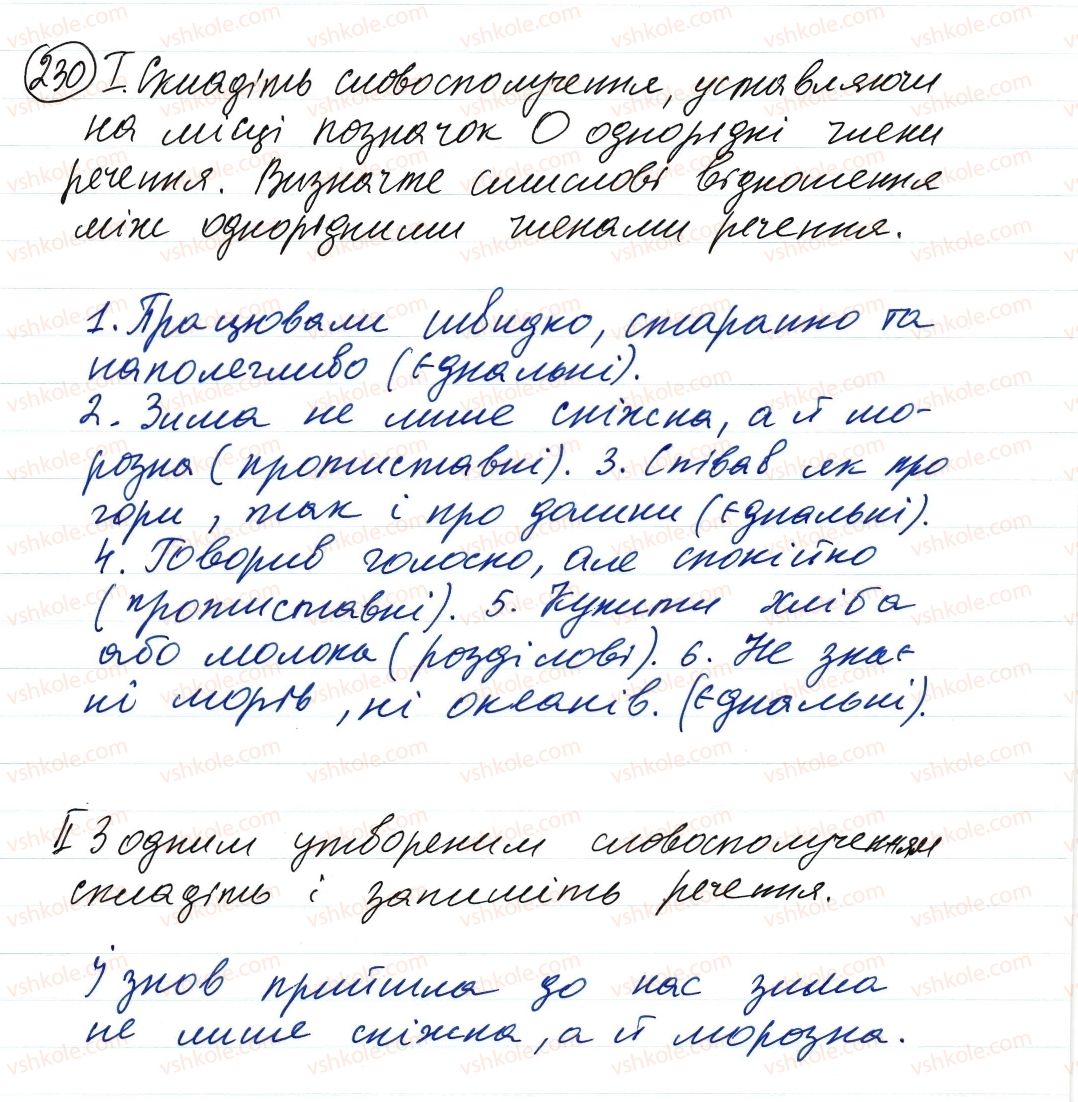 230 I. Складіть словосполучення, уставляючи
на місці позначок О однорідні члени
речення. Визначте смислові відношення
між однорідними членами речення.
1. Працювали швидко, старанно та
наполегливо (єднальні).
2. Зима не лише сніжна, а й мо-
розна (протиставні). 3. Співав як про
гори, так і про долини (єднальні).
4. Говорив голосно, але спокійно
(протиставні). 5. Купити хліба
або молока (розділові). 6. Не знає
ні морів, ні океанів. (єднальні).
II З одним утвореним словосполученням
складіть і запишіть речення.
І знов прийшла до нас зима
не лише сніжна, а й морозна.
vshkole.com